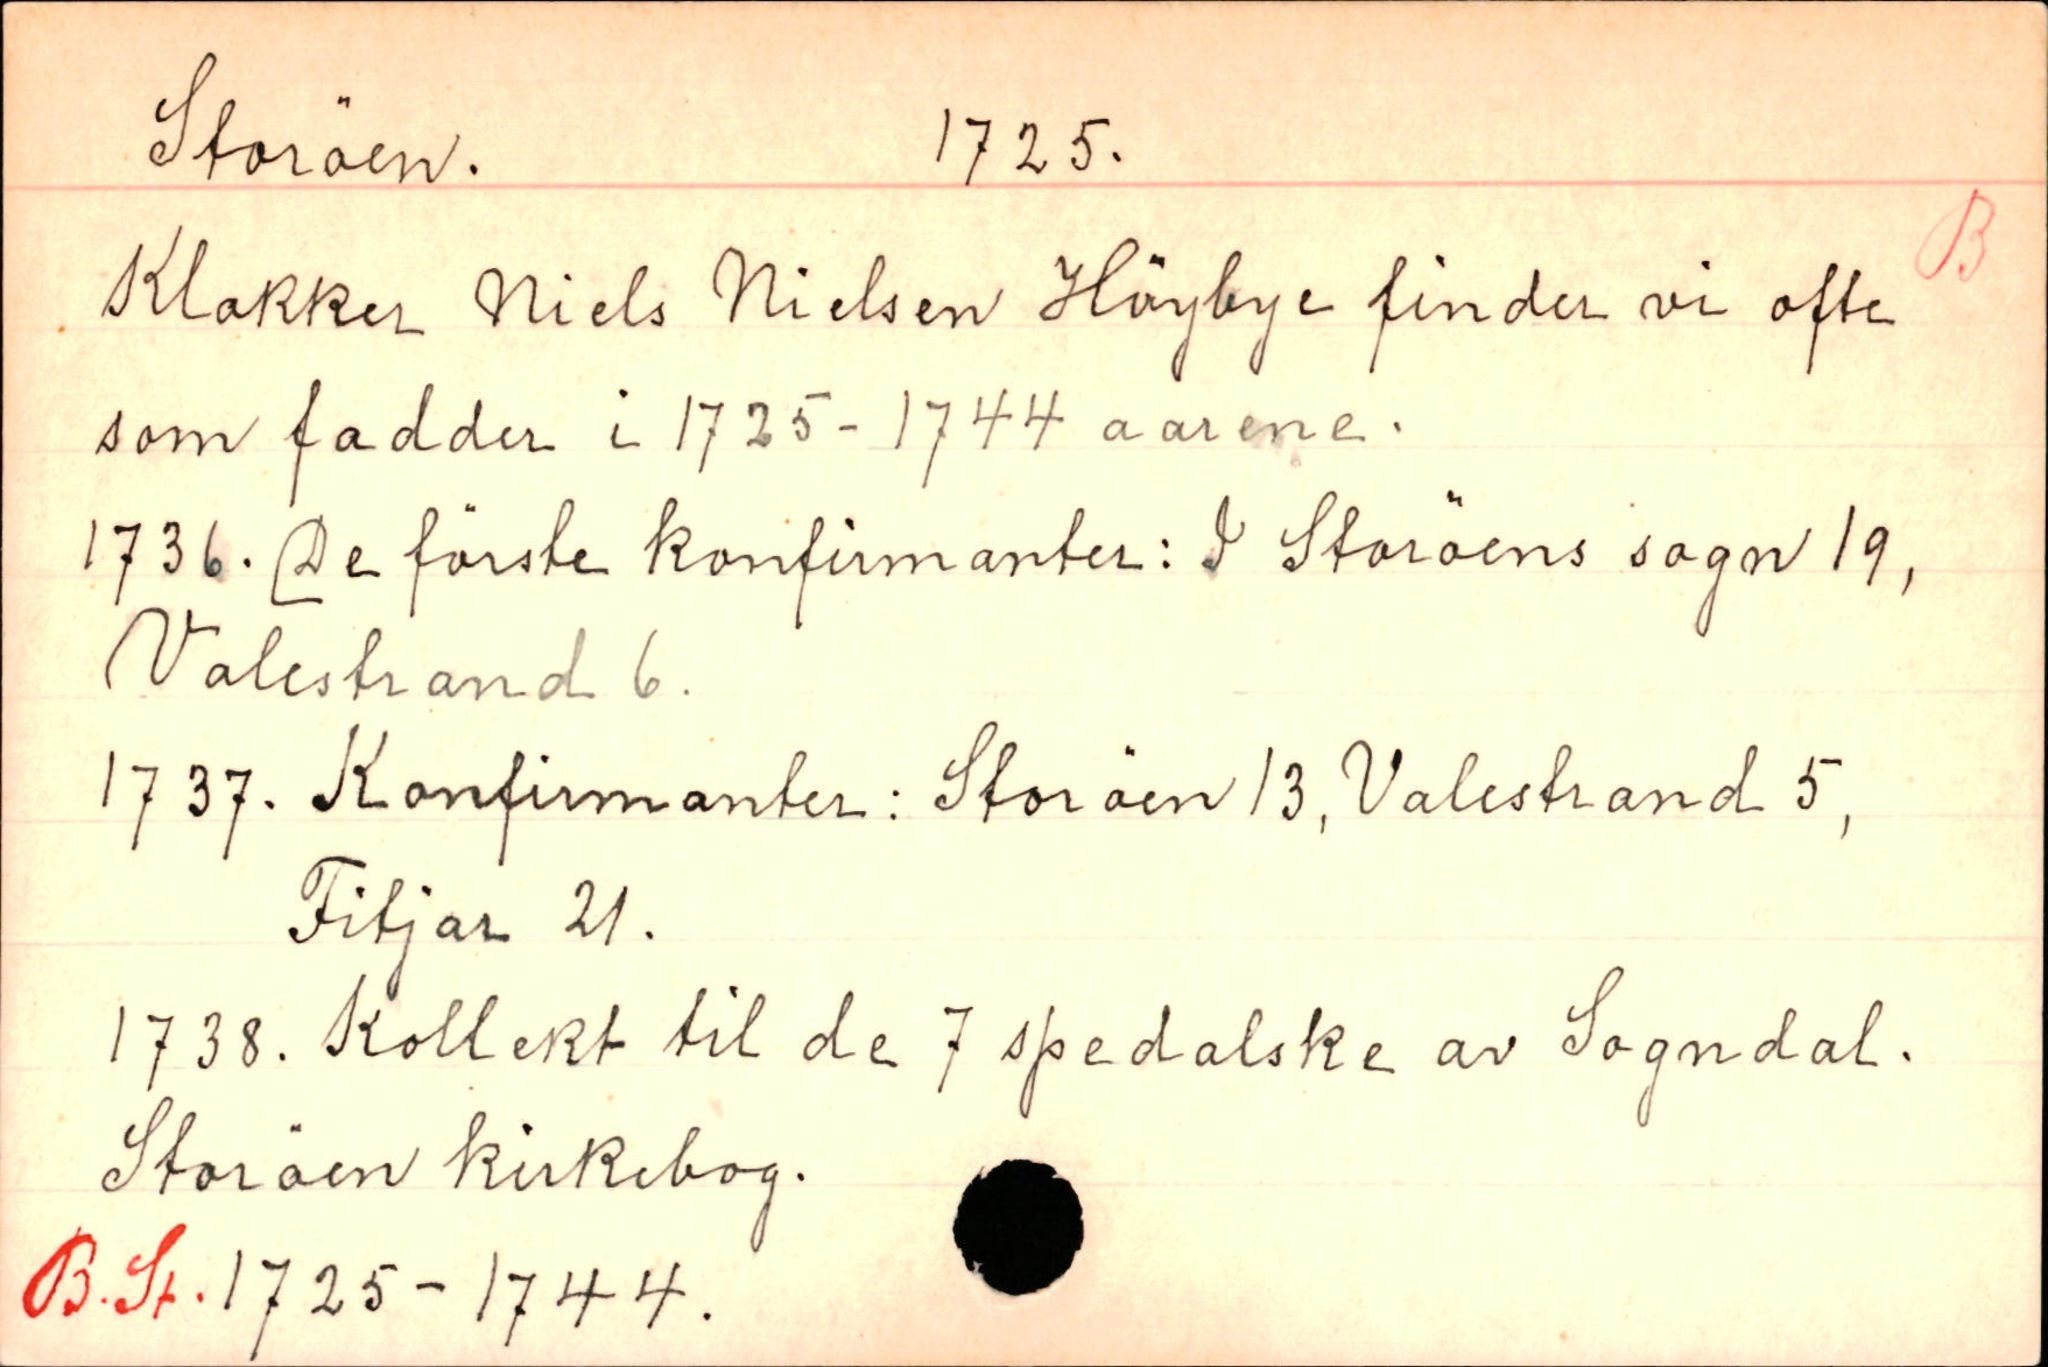 Storöen. 1725.
B
Klokker Niels Nielsen Höybye finder vi ofte
som fadder i 1725-1744 aarene.
1736. De förste konfirmanter: I Storöens sogn 19,
Valestrand 6.
1737. Konfirmanter: Storöen 13, Valestrand 5,
Fitjar 21.
1738. Kollekt til de 7 spedalske av Sogndal.
Storöen kirkebog.
B. St. 1725-1744.